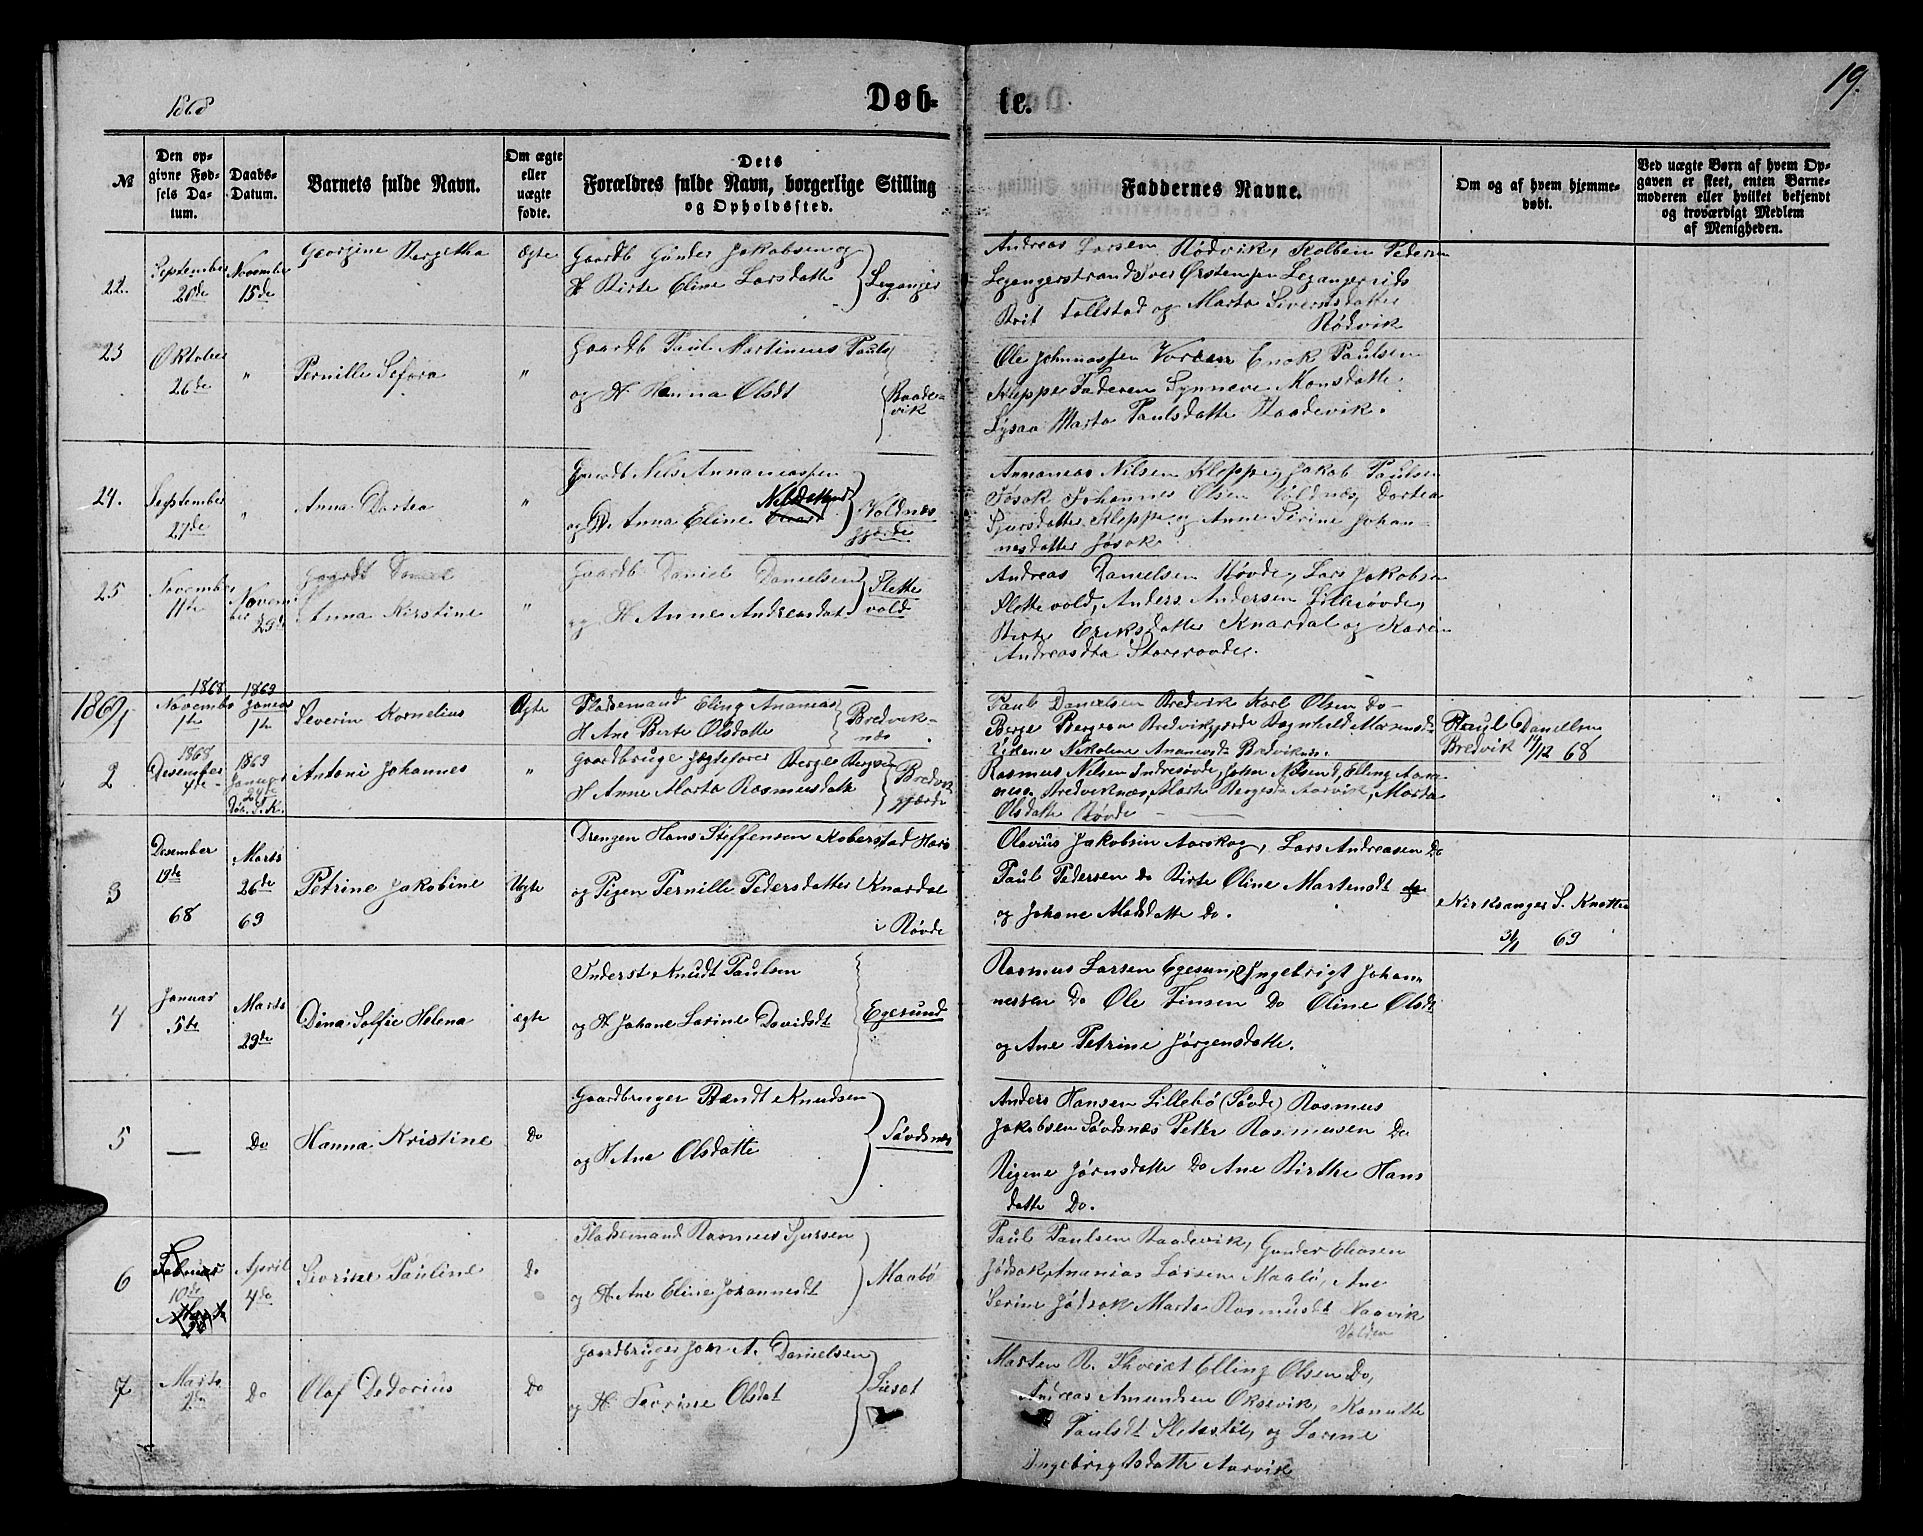 1868
Døb-
te.
19.
№
Den op-
givne Fød-
sels Da-
tum.
Daabs-
Datum.
Barnets fulde Navn.
Om ægte
eller
uægte
fødte.
Dets
Forældres fulde Navn, borgerlige Stilling
og Opholdssted.
Faddernes Navne.
Om og af hvem hjemme-
døbt.
Ved uægte Børn af hvem Op-
gaven er skeet, enten Barne-
moderen eller hvilket bekjendt
og troværdigt Medlem
af Menigheden.
22.
September
20de
November
15de
Georgine Bergitha
Ægte
Gaardb Gunder Jakobsen og
H Birte Eline Larsdatte
Leganger
Andreas Larsen Rødvik, Kolbein Peders
Legangerstrand Iver Østensen Legangereids
Brit Tollstad og Marta Siverrsdatter
Rødvik
23
Oktober
26de
"
Pernille Sefora
"
Gaardb Paul Martinus Pauls
og H Hanna Olsdt
Raade-
vik
Ole Johnnassen Vorren Enok Paulsen
Kleppe Faderen Synneve Monsdatte
Lysaa Marta Paulsdatte Raadevik.
24.
September
27de
"
Anna Dortea
"
Gaardb Nils Annaniassen
og H. Anna Eline
Voldnæs
gjærde
Annanias Nilsen Kleppe, Jakob Paulsen
Jøsok Johannes Olsen Voldnæs, Dortea
Sjursdatter Kleppe og Anne Sirine Johan-
nesdatter Jøsok
25
November
11te
Novem
ber
29de
Gaardb Daniel
Anna Kirstine
"
Gaardb Daniel Danielsen
og H Anne Andreasdat
Slette
vold
Andreas Danielsen Røvde, Lars Jakobsen
Slettevold, Anders Andersen Lillerøvde,
Birte Eriksdatter Knardal og Karen
Andreasdta Storerøvde.
1869/1
1868
Novembr
1te
1869
Januar
1te
Severin Kornelius
Ægte
Pladsemand Eling Ananias
H Ane Berte Olsdatte
Bredvik-
næs
Paul Danielsen Bredvik Karl Olsen Do-
Berge Bergsen Bredvikgjærde Ragnhild Marensdt
Nikoline Ananiasdt Bredviknæs.
Paul Danielsen
Bredvik 14/12 68
2
1868
Desember
4de
1869
Januar
24de
Antoni Johannes
"
Gaardbruge Jægtefører Berge Bergsen
H Anne Marta Rasmusdatte
Bredvik
gjærde
Rasmus Nilsen Indrerøvde, John Nilsen d, Elling Anan
Bredviknæs, Marte Bergesdt Aarvik, Marta
Olsdatte Røvde
3
Desember
19de
68
Marts
26de
69
Petrine Jakobine
Uægte
Drengen Hans Steffensen Koberstad Hors
og Pigen Pernille Pedersdatter Knardal
i Røvde
Olavius Jakobsen Aarskog, Lars Andreasen Do
Paul Pedersen do Birte Oline Martensdt
og Johane Madsdatte Do.
Kirksanger S. Knotten
31/1 69
4
Januar
5te
Marts
29de
Dina Solfie Helena
ægte
Inderst Knudt Paulsen
og H Johane Larine Davidsdt
Egesund
Rasmus Larsen Egesund, Ingebrigt Johan-
nessen Do Ole Finsen Do Oline Olsdt
og Ane Petrine Jørgensdatte.
5
—
Do
Hanna Kristine
Do
Gaardbruger Bændt Knudsen
og H Ane Olsdatte
Søvdsnæs
Anders Hansen Lillebø (Søvde) Rasmus
Jakobsen Søvdsnæs Petter Rasmusen Do
Rigene Jørnsdatte Do Ane Birthe Hans
datte Do.
6
Februar
10de
April
4de
Sivrine Pauline
Do
Pladsemand Rasmus Sjursen
og H Ane Eline Johannesdt
Maabø
Paul Paulsen Raadevik, Gunder Eliasen
Jødsok, Ananias Larsen Maabø, Ane
Serine Jødsok Marta Rasmusdt Naavik
Volden
7
Marts
2den
Do
Olaf Dedorius
Do
Gaardbruger Jon A. Danielsen
og H Severine Olsdat
Sæsæt
Marten R. Elling Olsen Do,
Andreas Amundsen Oksevik, Konutte
Paulsdt Sletastøl, og Larine
Ingebrigtsdatte Aarvik